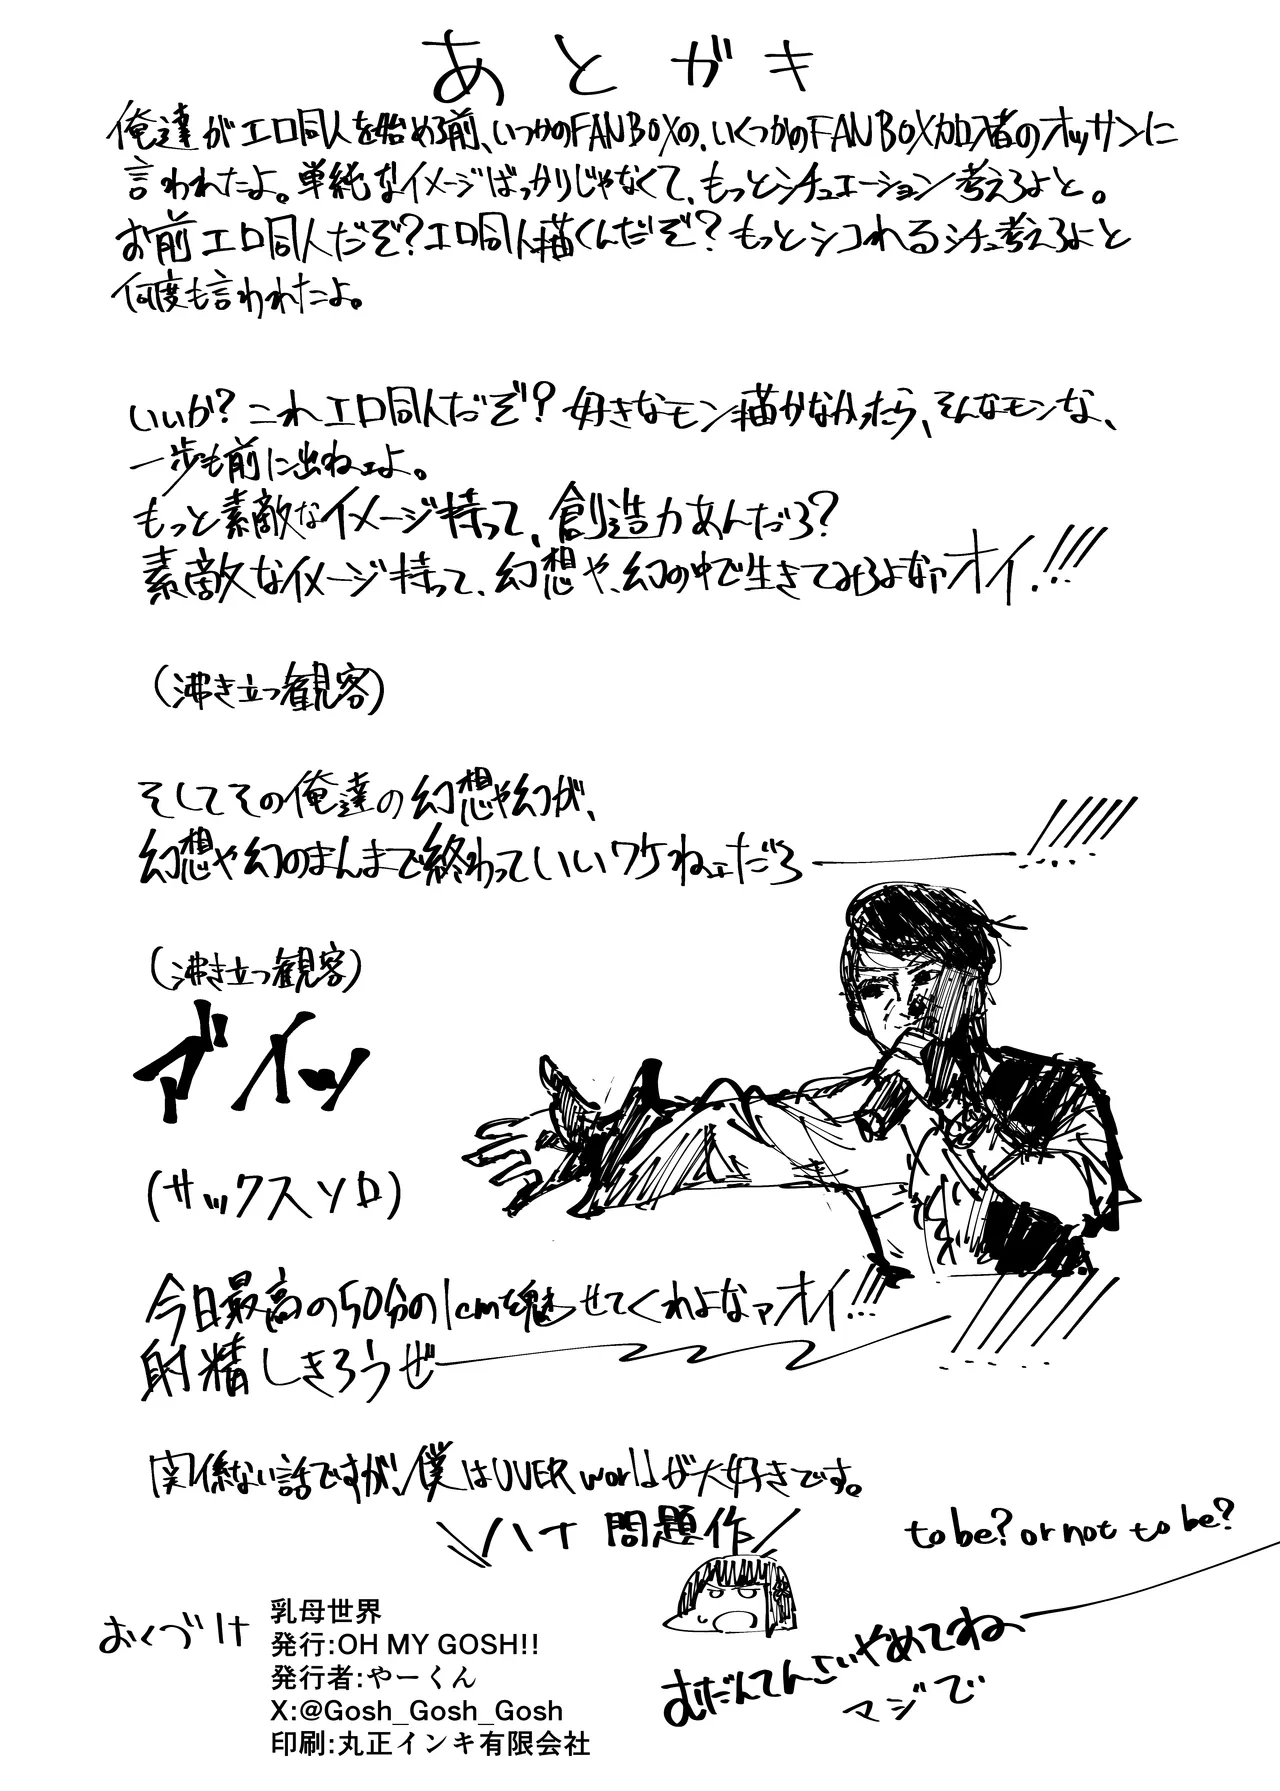 あとがき
俺達がエロ同人を始める前、いつかのFANBOXの、いくつかのFANBOX加入者のオッサンに
言われたよ。単純なイメージばっかりじゃなくて、もっとシチュエーション考えろよと。
お前エロ同人だぞ?エロ同人描くんだぞ?もっとシコれるシチュ考えろよと
何度も言われたよ。
いいか?これエロ同人だぞ?好きなモン描かなかったら、そんなモンな、
一歩も前に出ねェよ。
もっと素敵なイメージ持って、創造力あんだろ?
素敵なイメージ持って、幻想や、幻の中で生きてみろよなァオイ!!!
(沸き立つ観客)
そしてその俺達の幻想や幻が、
幻想や幻のまんまで終わっていいワケねェだろ――!!!!!
(沸き立つ観客)
マイッ
(サックスソロ)
今日最高の50分の1cmを魅せてくれよなァオイ!!!
射精しきろうぜ――!!!!!
関係ない話ですが、僕はUVERworldが大好きです。
\ハナ問題作/
to be? or not to be?
むだんてんさいやめてね―
マジで
おくづけ
乳母世界
発行:OH MY GOSH!!
発行者:やーくん
X:@Gosh_Gosh_Gosh
印刷:丸正インキ有限会社